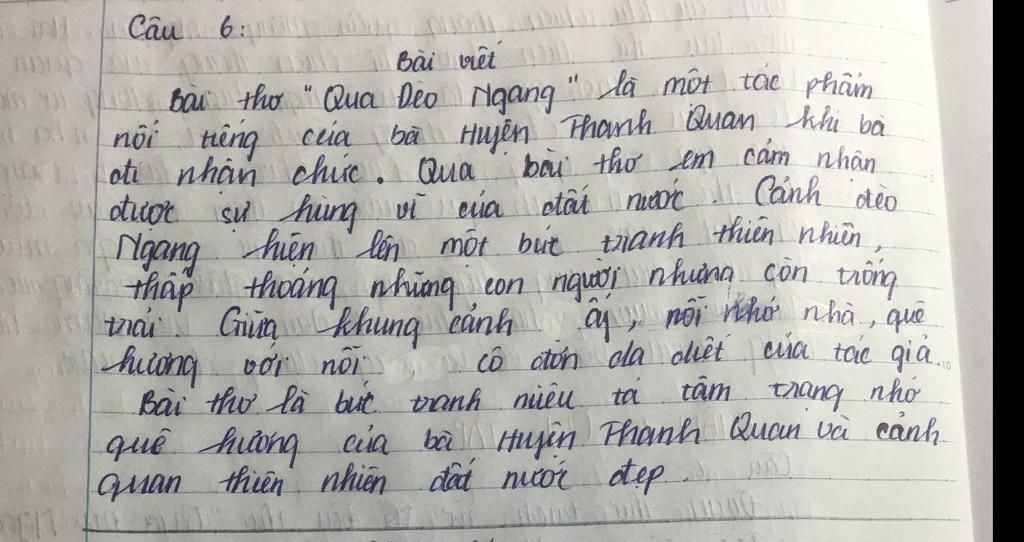 Câu 6:
Bài viết
Bài thơ "Qua Đèo Ngang" là một tác phẩm
nổi tiếng của bà Huyện Thanh Quan khi bà
đi nhận chức. Qua bài thơ em cảm nhận
được sự hùng vĩ của đất nước. Cảnh đèo
Ngang hiện lên một bức tranh thiên nhiên,
thấp thoáng những con người nhưng còn trống
trải. Giữa khung cảnh ấy, nỗi nhớ nhà, quê
hương với nỗi cô đơn da diết của tác giả.
Bài thơ là bức tranh miêu tả tâm trạng nhớ
quê hương của bà Huyện Thanh Quan và cảnh
quan thiên nhiên đất nước đẹp.